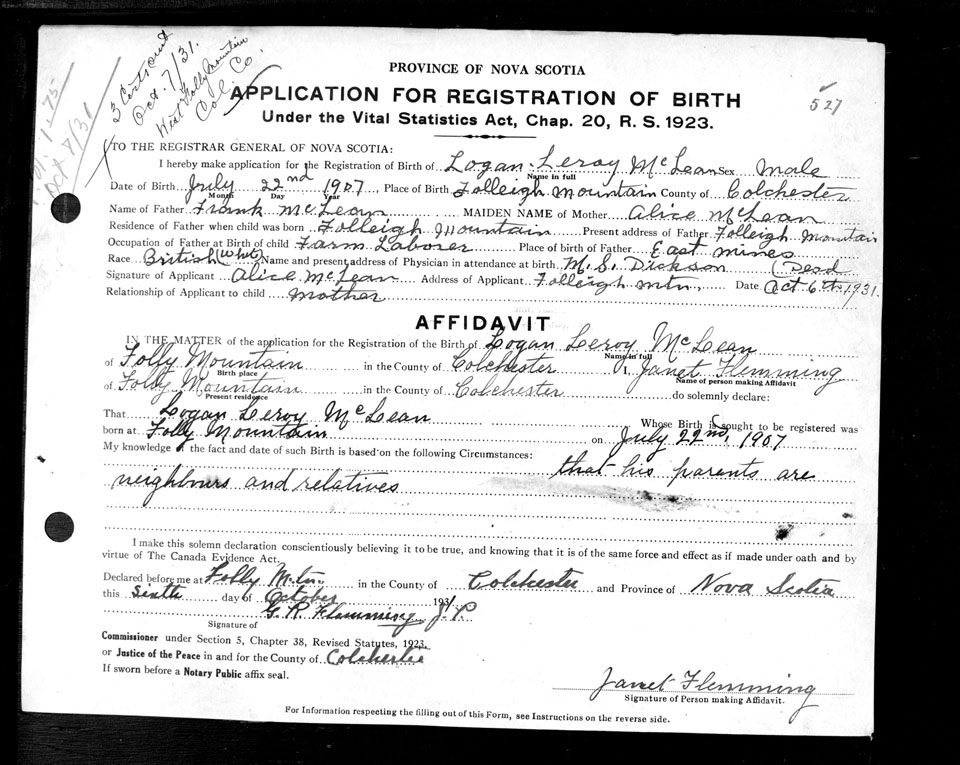 3 Certs out
Oct. 7/31.
West Folly Mountain
Col. Co.
1.75
Oct 8/31
527
PROVINCE OF NOVA SCOTIA
APPLICATION FOR REGISTRATION OF BIRTH
Under the Vital Statistics Act, Chap. 20, R. S. 1923.
TO THE REGISTRAR GENERAL OF NOVA SCOTIA:
I hereby make application for the Registration of Birth of Logan Leroy McLean Sex Male
Name in full
Date of Birth July 22nd 1907 Place of Birth Folleigh Mountain County of Colchester
Month Day Year
Name of Father Frank McLean MAIDEN NAME of Mother Alice McLean
Residence of Father when child was born Folleigh Mountain Present address of Father Folleigh Mountain
Occupation of Father at Birth of child Farm Laborer Place of birth of Father East mines
Race British (White) Name and present address of Physician in attendance at birth M. S. Dickson (Dead
Signature of Applicant Alice McLean Address of Applicant Folleigh Mtn, Date Oct 6th 1931.
Relationship of Applicant to child mother
AFFIDAVIT
IN THE MATTER of the application for the Registration of the Birth of Logan Leroy McLean
Name in full
of Folly Mountain in the County of Colchester I, Janet Flemming
Birth place Name of person making Affidavit
of Folly Mountain in the County of Colchester do solemnly declare:
Present residence
That Logan Leroy McLean Whose Birth is sought to be registered was
born at Folly Mountain on July 22nd, 1907
My knowledge of the fact and date of such Birth is based on the following Circumstances: that his parents are
neighbours and relatives
I make this solemn declaration conscientiously believing it to be true, and knowing that it is of the same force and effect as if made under oath and by
virtue of The Canada Evidence Act.
Declared before me at Folly Mtn. in the County of Colchester and Province of Nova Scotia
this Sixth day of October 1931
G. R. Flemming J.P.
Signature of
Commissioner under Section 5, Chapter 38, Revised Statutes, 1923.
or Justice of the Peace in and for the County of Colchester
If sworn before a Notary Public affix seal.
Janet Flemming
Signature of Person making Affidavit.
For Information respecting the filling out of this Form, see Instructions on the reverse side.